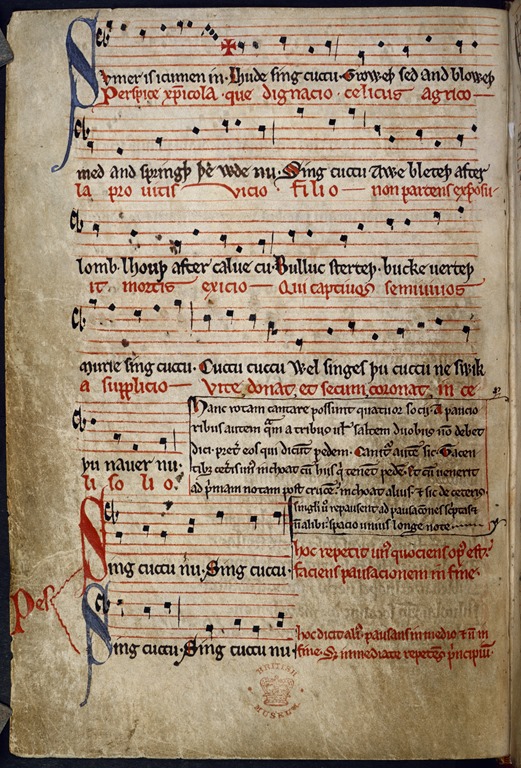 Sumer is icumen in. Lhude sing cuccu. Groweþ sed and bloweþ
Perspice xp̄icola. que dignacio. celicus agrico
med and springþ þe wde nu. Sing cuccu Awe bleteþ after
la pro uitis vicio filio non parcens exposu
lomb lhouþ after calue cu. Bulluc sterteþ. bucke uerteþ
it mortis exicio Qui captiuos semiuiuos
murie sing cuccu. Cuccu cuccu Wel singes þu cuccu ne swik
a supplicio Vite donat et secum coronat in ce
þu nauer nu.
li so li o.
Hanc rotam cantare possunt quatuor socij. A paucio
ribus autem quam a tribus uel saltem duobus non debet
dici. preter eos qui dicunt pedem. Canitur autem sic. Tacen
tibus ceteris unus inchoat cum hiis qui tenent pedem. et cum uenerit
ad primam notam post crucem. inchoat alius. et sic de ceteris.
singuli uero repausent ad pausaciones scriptas et
non alibi. spacio unius longe note.
Sing cuccu nu. Sing cuccu.
hoc repetit unus quociens opus est.
faciens pausacionem in fine.
Pes
Sing cuccu. Sing cuccu nu
hoc dicit alius. pausans in medio et non in
fine. Set immediate repetens principium.
BRITISH
MUSEUM